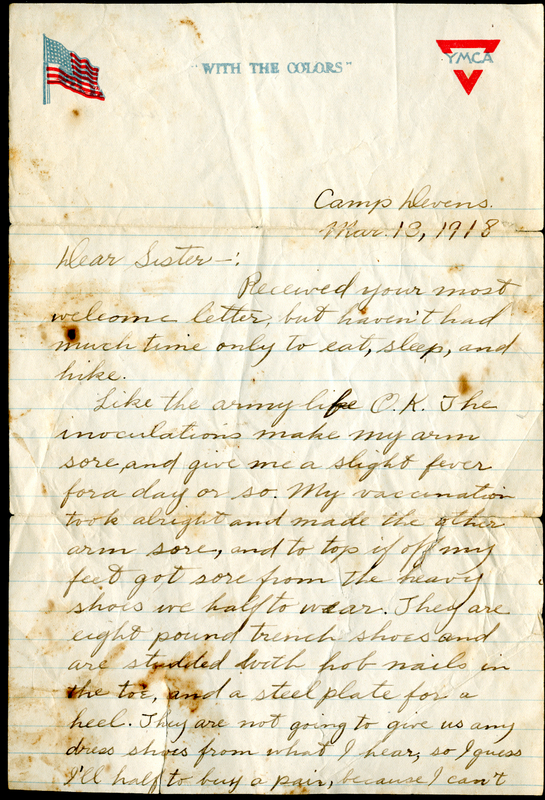 "WITH THE COLORS"
YMCA
Camp Devens.
Mar. 13, 1918
Dear Sister—:
Received your most
welcome letter, but haven't had
much time only to eat, sleep, and
hike.
Like the army life O.K. The
inoculations make my arm
sore, and give me a slight fever
for a day or so. My vaccination
took alright and made the other
arm sore, and to top it off my
feet got sore from the heavy
shoes we half to wear. They are
eight pound trench shoes and
are studded with hob nails in
the toe, and a steel plate for a
heel. They are not going to give us any
dress shoes from what I hear, so I guess
I'll half to buy a pair, because I can't